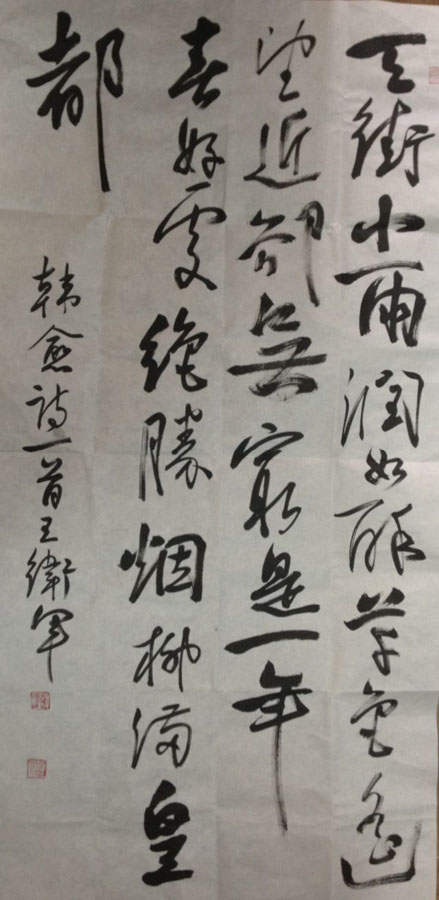 天街小雨潤如酥草色遙
望近卻無最是一年
春好處絕勝烟柳滿皇
都
韓愈詩一首王衛軍